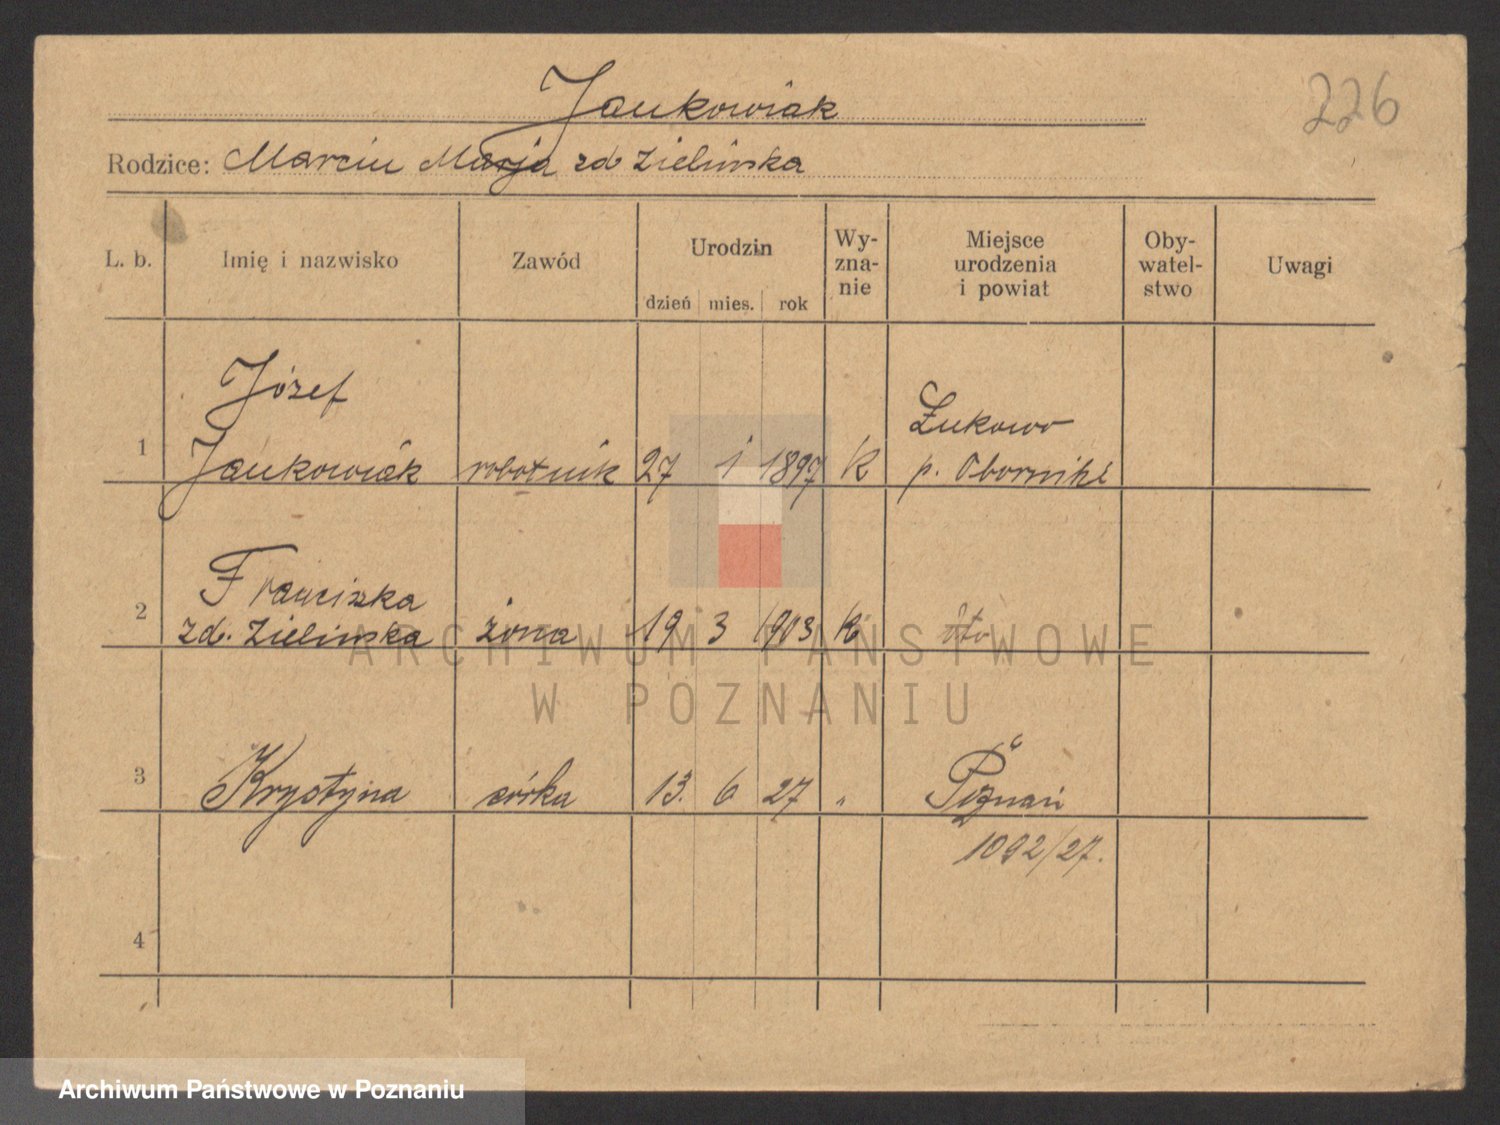 Jankowiak
226
Rodzice: Marcin Marja zd Zielińska
L. b. Imię i nazwisko Zawód Urodzin dzień mies. rok Wy-
zna-
nie Miejsce
urodzenia
i powiat Oby-
watel-
stwo Uwagi
Józef
Łukowo
1 Jankowiak robotnik 27 1 1897 K p. Oborniki
Franciszka
2 zd. Zielińska żona 19 3 1903 K
ARCHIWUM PAŃSTWOWE
W POZNANIU
3 Krystyna córka 13. 6 27 " Poznań
1092/27.
4
Archiwum Państwowe w Poznaniu